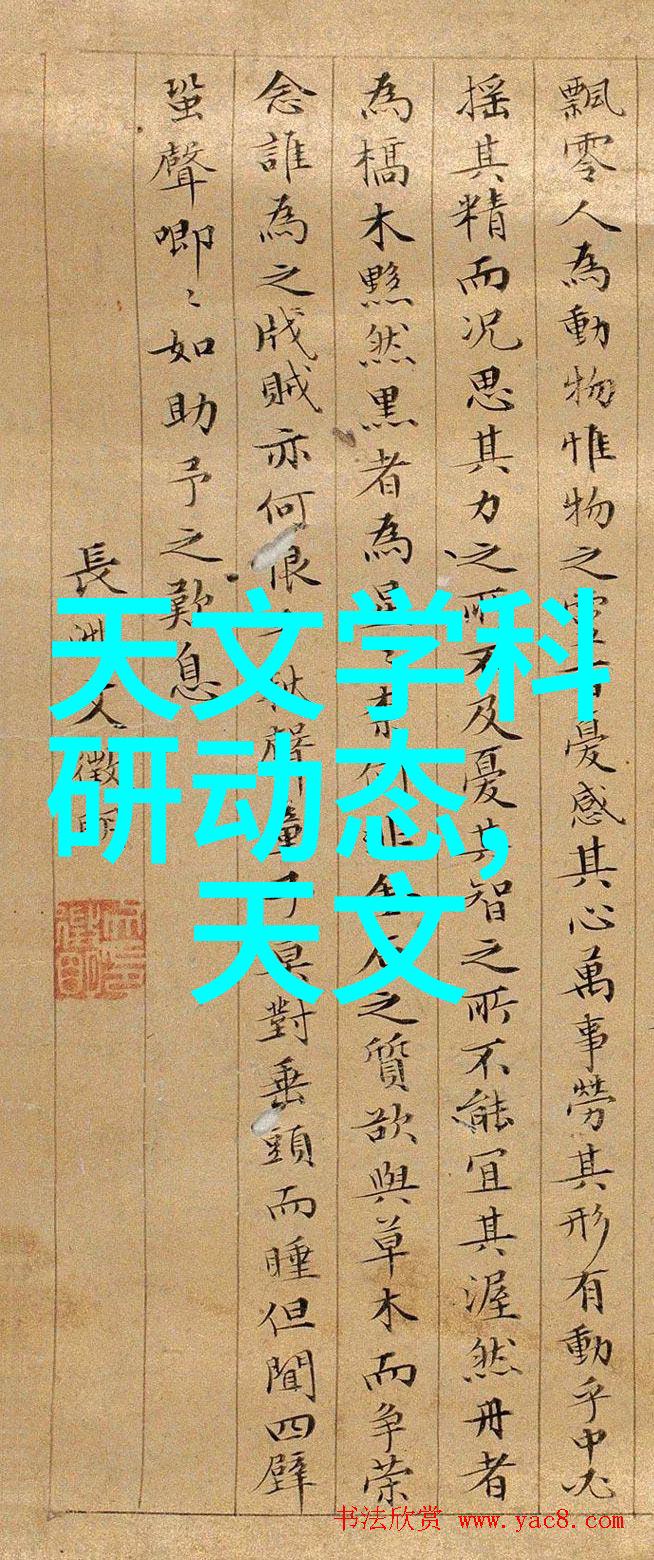 飄零人為動物惟物之靈百憂感其心萬事勞其形有動乎中必
摇其精而况思其力之所不及憂其智之所不能宜其渥然丹者
為槁木黟然黒者為星〻奈何非金石之質欲與草木而争荣
念誰為之戕賊亦何恨乎秋聲童子莫對垂頭而睡但聞四壁
蛩聲唧〻如助予之歎息
長洲文徵明
天文学科
研动态,
天文
书法欣赏 www.yac8.com